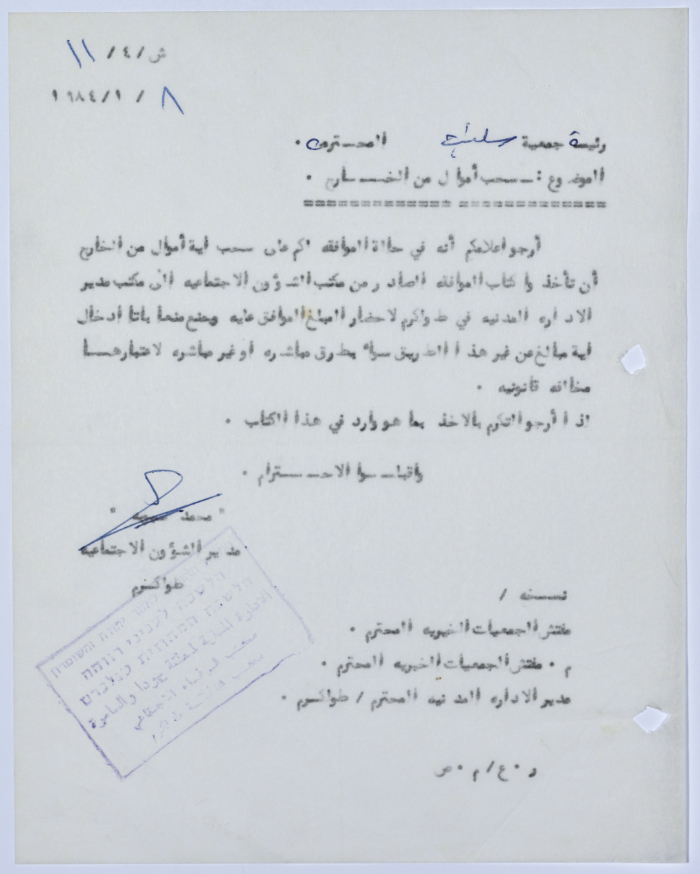 ش/٤/ ١١
٨ /١/١٩٨٤
رئيسة جمعية المحترمه ٠
الموضوع : ــ سحب أموال من الخــارج ٠
===========================
أرجو اعلامكم أنه في حالة الموافقه لكم على سحب أية أموال من الخارج
أن تأخذوا كتاب الموافقه الصادر من مكتب الشؤون الاجتماعيه الى مكتب مدير
الاداره المدنيه في طولكرم لاحضار المبلغ الموافق عليه ويمنع منعا باتا ادخال
أية مبالغ عن غير هذا الطريق سواء بطرق مباشره أو غير مباشره لاعتبارهــا
مخالفه قانونيه ٠
لذا أرجو التكرم بالاخذ بما هو وارد في هذا الكتاب ٠
واقبلــوا الاحــترام ٠
" محمد "
مدير الشؤون الاجتماعيه
طولكرم
نسخه /
مفتش الجمعيات الخيريه المحترم ٠
م ٠ مفتش الجمعيات الخيريه المحترم ٠
مدير الاداره المدنيه المحترم / طولكرم ٠
ر ٠ ع / م ٠ ص